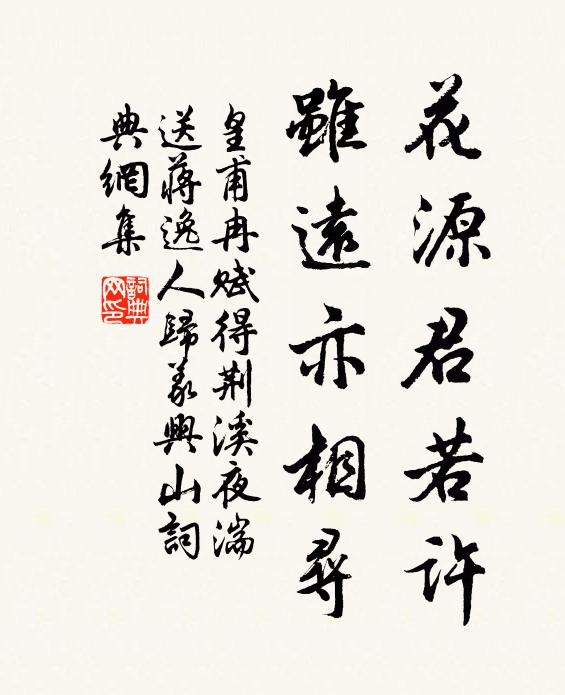 花源君若許
雖遠亦相尋
皇甫冉賦得荆溪夜湍
送蔣逸人歸義興山詞
典網集
詞典
网印